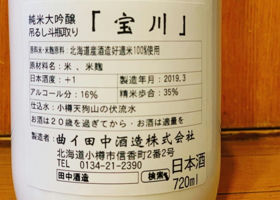 純米大吟醸
吊るし斗瓶取り
「宝川」
原料米・米麹原料:北海道産酒造好適米100%使用
原材料名:米、米麹
日本酒度:+1
製造年月:2019.3
アルコール分:16%
精米歩合:35%
仕込水:小樽天狗山の伏流水
お酒は20歳を過ぎてから・お酒は適量を
製造者
田中酒造株式会社
北海道小樽市信香町2番2号
TEL 0134-21-2390
田中酒造
検索
日本酒
720ml